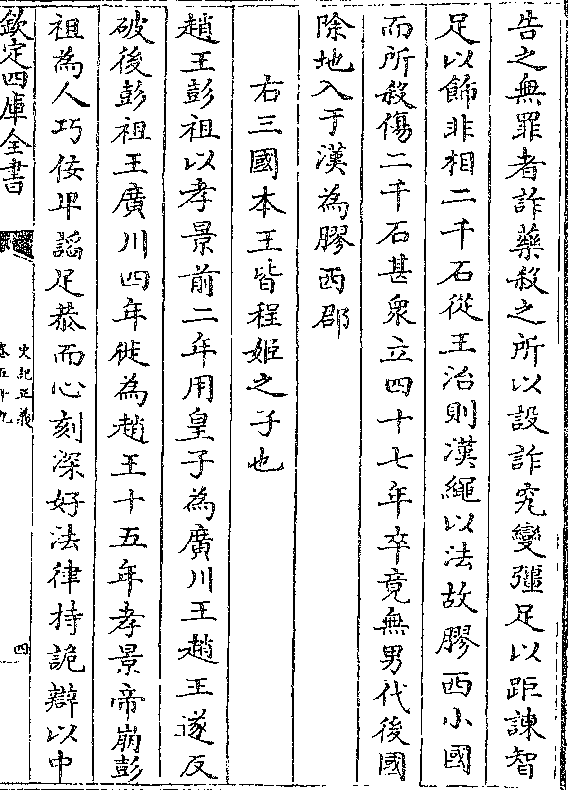 告之無罪者詐藥殺之所以設詐究變彊足以距諫智
足以飾非相二千石從王治則漢繩以法故膠西小國
而所殺傷二千石甚衆立四十七年卒竟無男代後國
除地入于漢為膠西郡
右三國本王皆程姬之子也
趙王彭祖以孝景前二年用皇子為廣川王趙王遂反
破後彭祖王廣川四年徙為趙王十五年孝景帝崩彭
祖為人巧佞卑諂足恭而心刻深好法律持詭辯以中
欽定四庫全書
史記正義
卷五十九
四